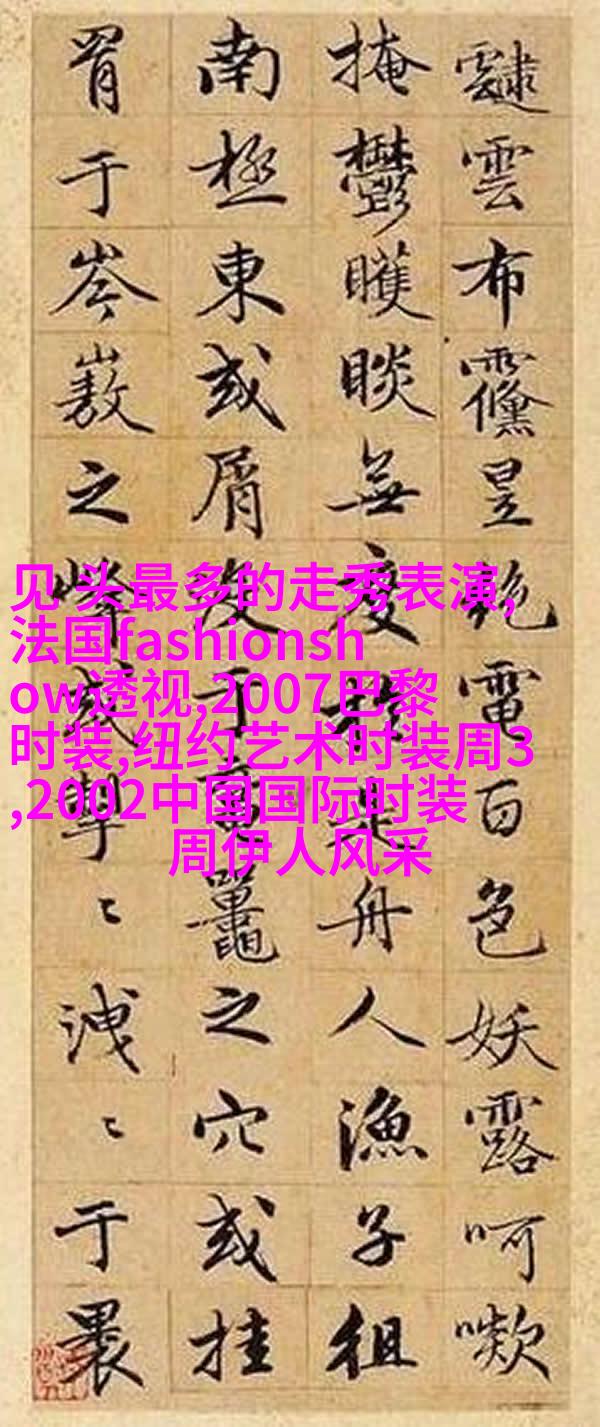 靆雲布昱絕電百色妖露呵
掩鬱矆睒無度於是舟人漁子徂
南極東或屑沒于黿鼉之穴或挂
罥于岑嶅之峰或掣〻洩〻于裸
见 头最多的走秀表演,
法国fashionsh
ow透视,2007巴黎
时装,纽约艺术时装周3
,2002中国国际时装
周伊人风采